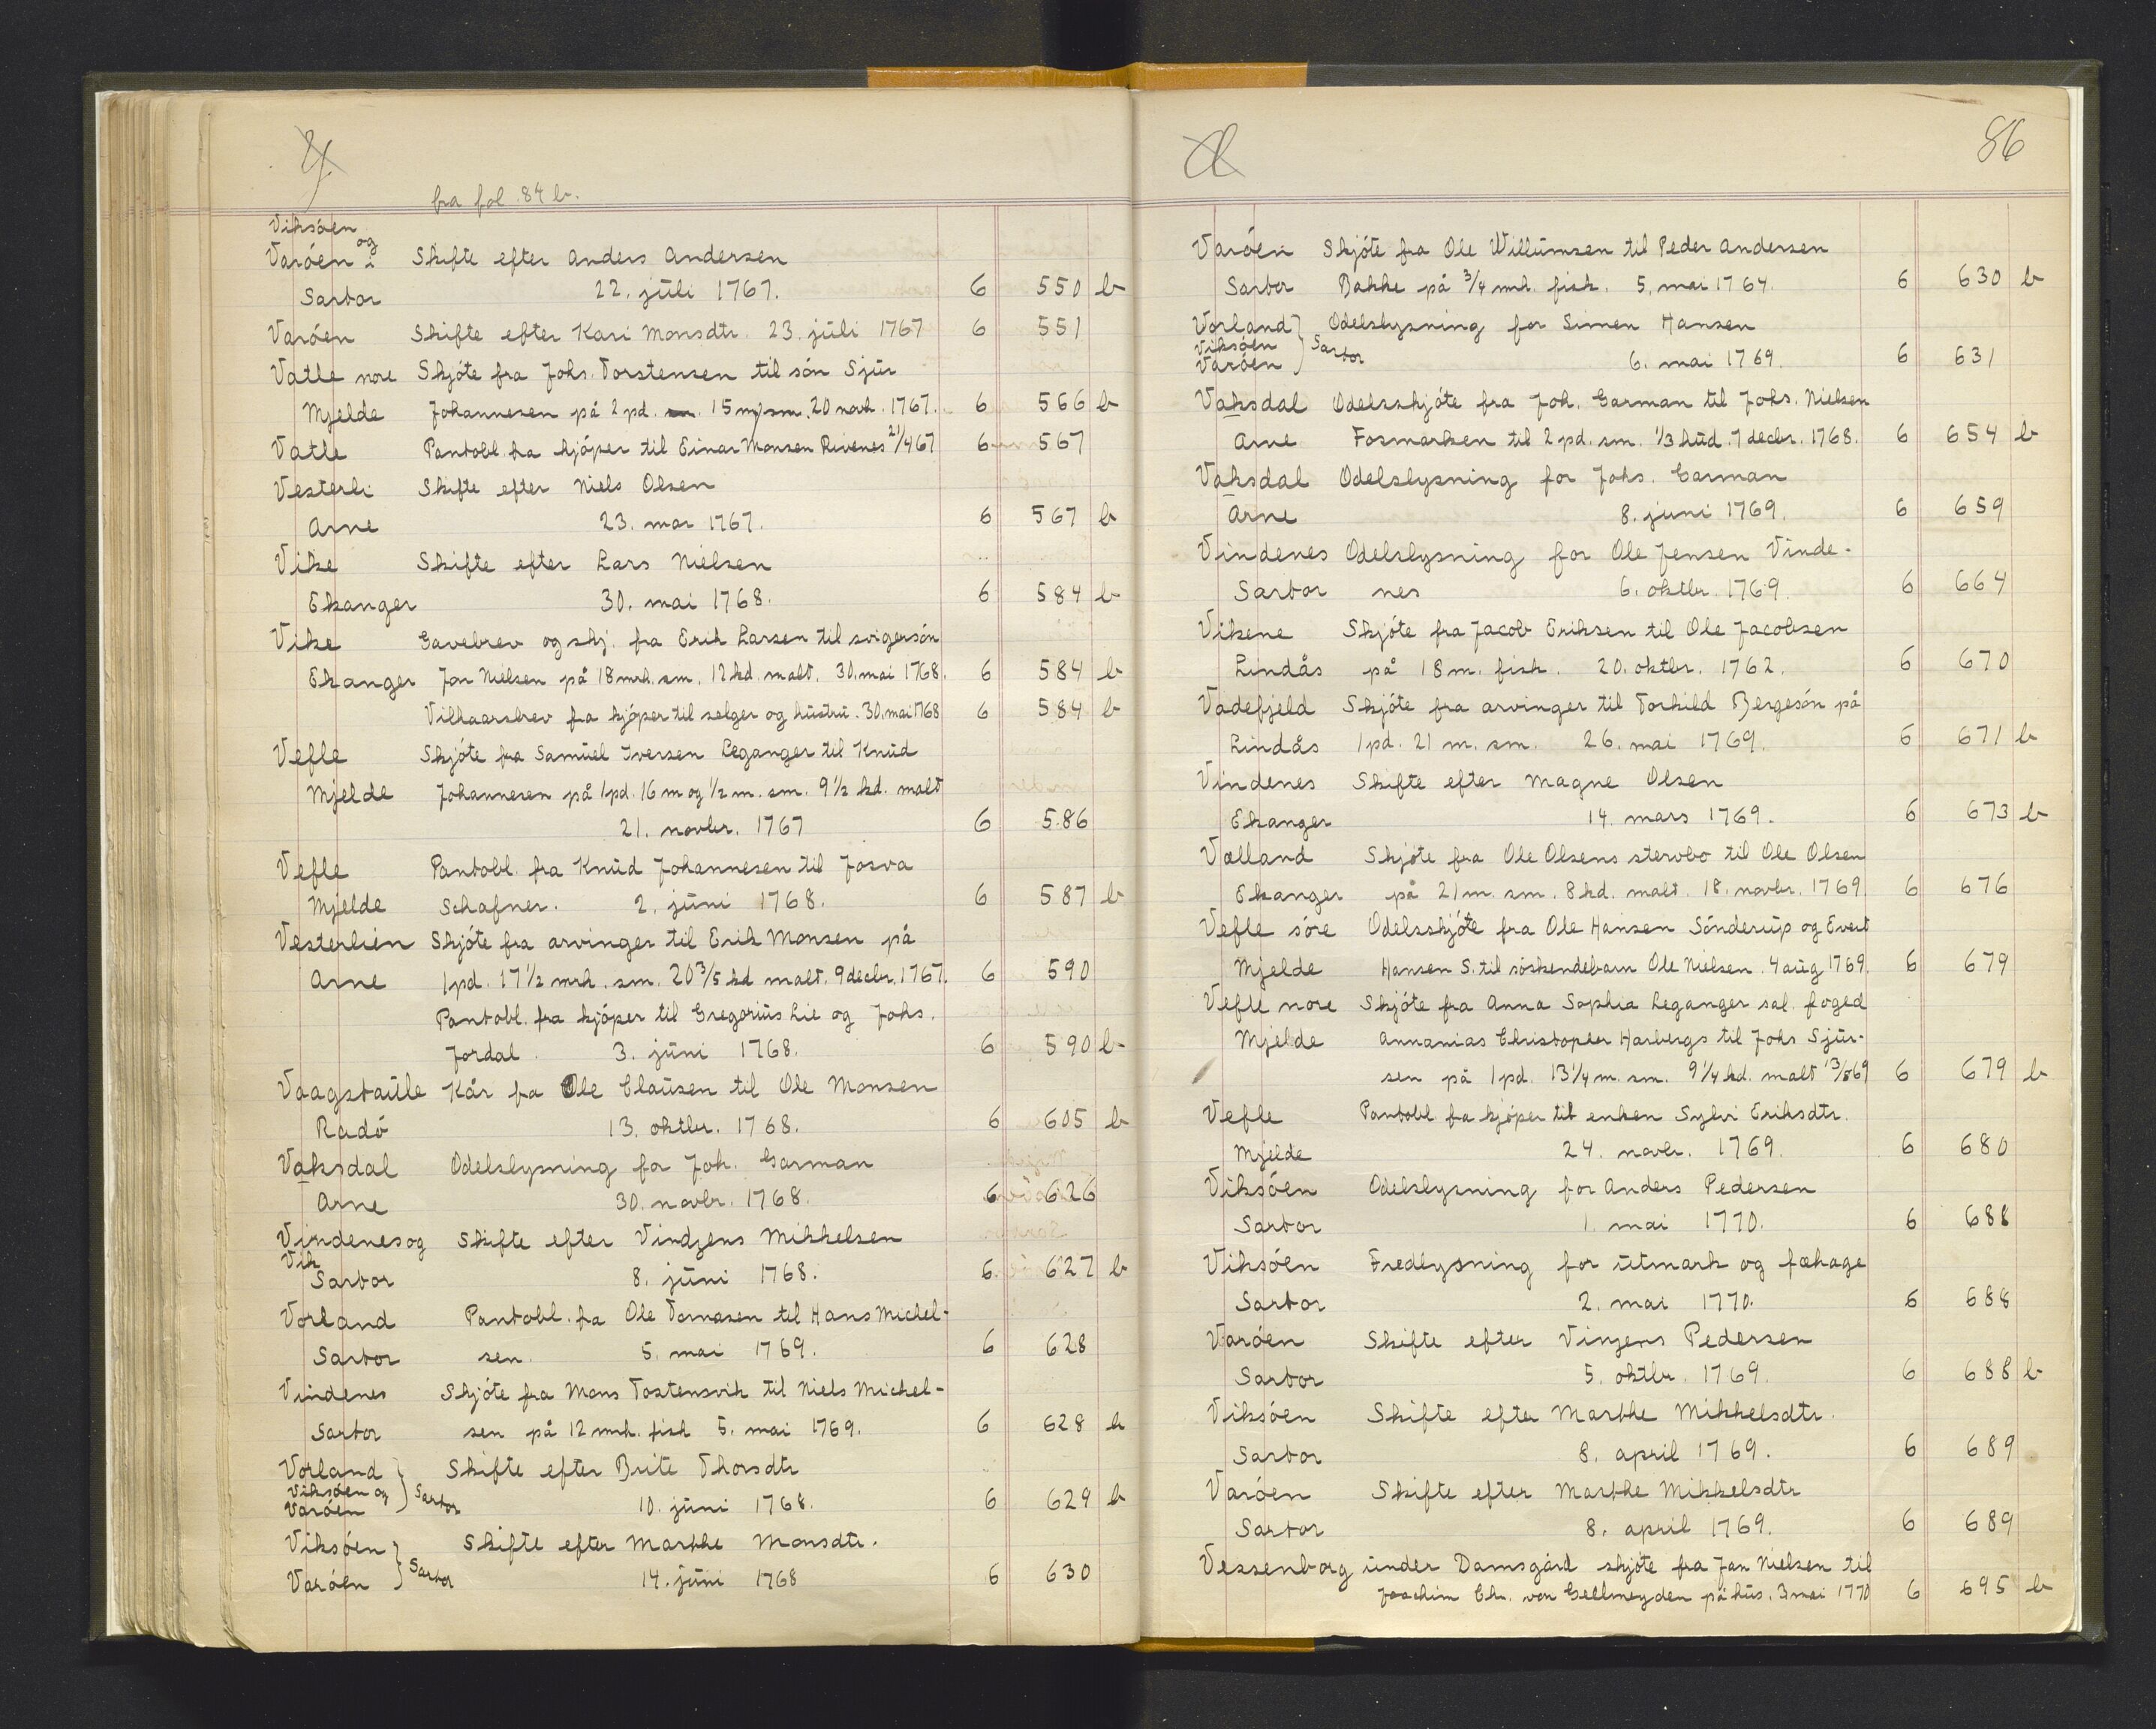 fra fol. 84 b.
Viksóen
og
Varóen Skifte efter Anders Andersen
Sartor 22. júli 1767. 6 550 b
Varóen Skifte efter Kari Monsdtr. 23. júli 1767 6 551
Vatle nore Skjóte fra Johs. Torstensen til són Sjúr
Mjelde Johannesen på 2 pd. 15 m sm. 20 novb. 1767. 6 566 b
Vatle Pantobl. fra kjóper til Einar Monsen Rivenes 21/4 67 6 567
Vesterli Skifte efter Niels Olsen
Arne 23. mar 1767. 6 567 b
Vike Skifte efter Lars Nielsen
Ekanger 30. mai 1768. 6 584 b
Vike Gavebrev og skj. fra Erik Larsen til svigersón
Ekanger Jon Nielsen på 18 mrk. sm. 12 kd. malt. 30. mai 1768. 6 584 b
Vilkaarsbrev fra kjóper til selger og hústrú. 30. mai 1768 6 584 b
Vefle Skjóte fra Samúel Iversen Leganger til Knúd
Mjelde Johannesen på 1 pd. 16 m og 1/2 m. sm. 9 1/2 kd. malt
21. novbr. 1767 6 586
Vefle Pantobl. fra Knúd Johannesen til Josva
Mjelde Schafner. 2. júni 1768. 6 587 b
Vesterlien Skjóte fra arvinger til Erik Monsen på
Arne 1 pd. 17 1/2 mrk. sm. 20 3/5 kd malt. 9 decbr. 1767. 6 590
Pantobl. fra kjóper til Gregoriús Lie og Johs.
Jordal. 3. júni 1768. 6 590 b
Vaagstaúle Kår fra Ole Claúsen til Ole Monsen
Radó 13. oktbr. 1768. 6 605 b
Vaksdal Odelslysning for Joh. Garman
Arne 30. novbr. 1768. 6 626
Vindenes og Skifte efter Vindzens Mikkelsen
Vik
Sartor 8. júni 1768. 6 627 b
Vorland Pantobl. fra Ole Tomasen til Hans Michel-
Sartor sen. 5. mai 1769. 6 628
Vindenes Skjóte fra Mons Tostensvik til Niels Michel-
Sartor sen på 12 mrk. fisk 5. mai 1769. 6 628 b
Vorland Skifte efter Brite Thorsdtr
Viksóen og Sartor
Varóen 10. júni 1768. 6 629 b
Viksóen Skifte efter Marthe Monsdtr.
Varóen Sartor 14. júni 1768 6 630
86
Varóen Skjóte fra Ole Willúmsen til Peder Andersen
Sartor Bakke på 3/4 mrk. fisk. 5. mai 1764. 6 630 b
Vorland Odelslysning for Simen Hansen
Viksóen Sartor
Varóen 6. mai 1769. 6 631
Vaksdal Odelsskjóte fra Joh. Garman til Johs. Nielsen
Arne Fosmarken til 2 pd. sm. 1/3 húd. 7 decbr. 1768. 6 654 b
Vaksdal Odelslysning for Johs. Garman
Arne 8. juni 1769. 6 659
Vindenes Odelslysning for Ole Jensen Vinde-
Sartor nes 6. oktbr. 1769. 6 664
Vikene Skjóte fra Jacob Eriksen til Ole Jacobsen
Lindås på 18 m. fisk. 20. oktbr. 1762. 6 670
Vadefjeld Skjóte fra arvinger til Torkild Bergesón på
Lindås 1 pd. 21 m. sm. 26. mai 1769. 6 671 b
Vindenes Skifte efter Magne Olsen
Ekanger 14. mars 1769. 6 673 b
Valland Skjóte fra Ole Olsens stervbo til Ole Olsen
Ekanger på 21 m. sm. 8 kd. malt. 18. novbr. 1769. 6 676
Vefle sóre Odelsskjóte fra Ole Hansen Sónderúp og Evert
Mjelde Hansen S. til sóskendebarn Ole Nielsen. 4 aúg 1769. 6 679
Vefle nore Skjóte fra Anna Sophia Leganger sal. foged
Mjelde Annanias Christopher Harbergs til Johs Sjúr-
sen på 1 pd. 13 1/4 m. sm. 9 1/4 kd. malt 13/8 69 6 679 b
Vefle Pantobl. fra kjóper til enken Sylvi Eriksdtr.
Mjelde 24. novbr. 1769. 6 680
Viksóen Odelslysning for Anders Pedersen
Sartor 1. mai 1770. 6 688
Viksóen Fredlysning for útmark og fæhage
Sartor 2. mai 1770. 6 688
Varóen Skifte efter Vinzens Pedersen
Sartor 5. oktbr. 1769. 6 688 b
Viksóen Skifte efter Marthe Mikkelsdtr.
Sartor 8. april 1769. 6 689
Varóen Skifte efter Marthe Mikkelsdtr
Sartor 8. april 1769. 6 689
Vessenborg únder Damsgård skjóte fra Jan Nielsen til
Joachim Chr. von Gellmeyden på hús. 3 mai 1770 6 695 b